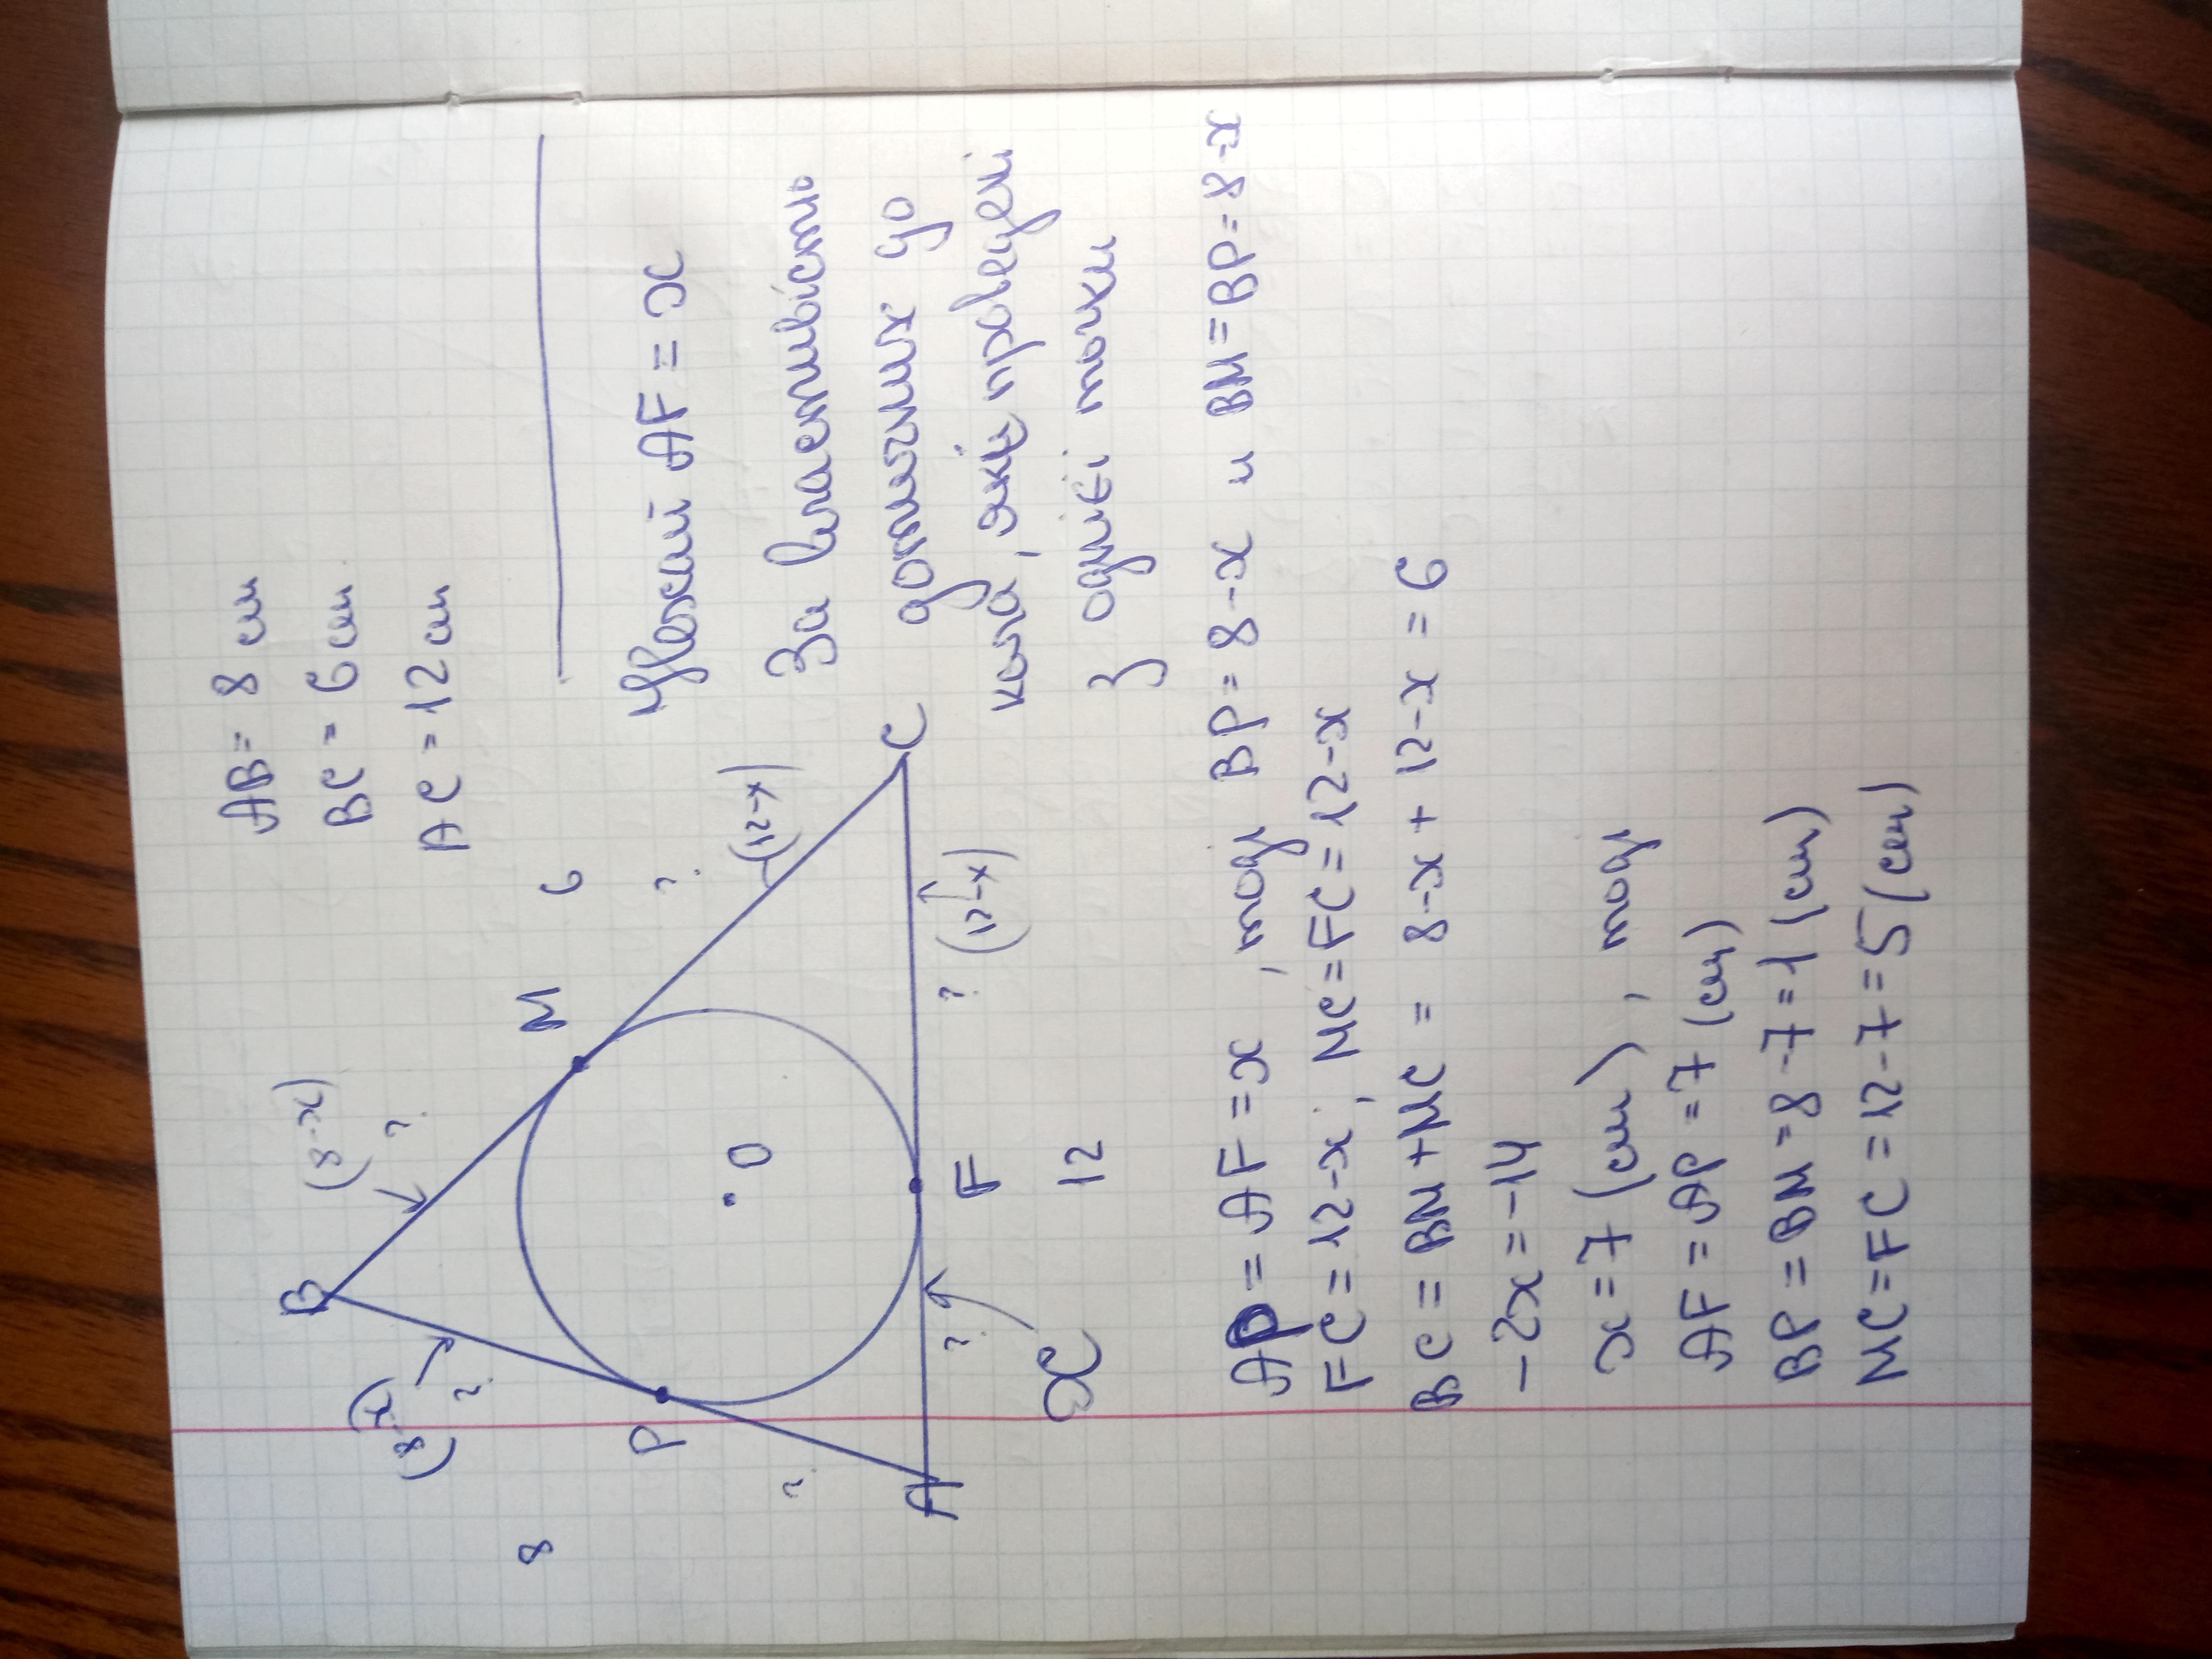 AB = 8 см
BC = 6 см
AC = 12 см
B
(8-x)
?
(8-x)
?
M
6
?
(12-x)
8
P
O
?
A
?
F
? (12-x)
C
x
12
Нехай AF = x
За властивістю
дотичних до
кола, які проведені
з однієї точки
AP = AF = x, тоді BP = 8-x и BM = BP = 8-x
FC = 12-x; MC = FC = 12-x
BC = BM + MC = 8-x + 12-x = 6
-2x = -14
x = 7 (см), тоді
AF = AP = 7 (см)
BP = BM = 8-7 = 1 (см)
MC = FC = 12-7 = 5 (см)